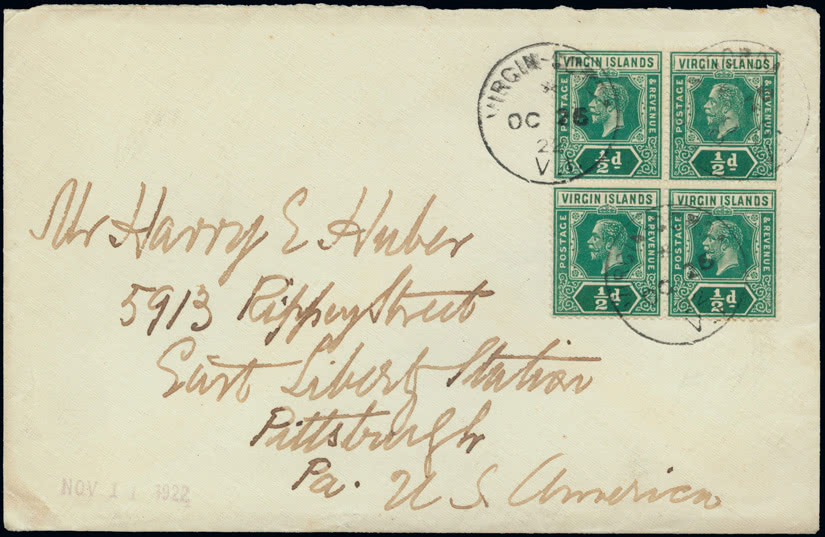 VIRGIN ISLANDS
POSTAGE
& REVENUE
½d
VIRGIN ISLANDS
POSTAGE
& REVENUE
½d
VIRGIN ISLANDS
POSTAGE
& REVENUE
½d
VIRGIN ISLANDS
POSTAGE
& REVENUE
½d
VIRGIN
OC 26
OC 26
Mr Harry E Huber
5913 Rippey Street
East Liberty Station
Pittsburgh
Pa. U S America
NOV 1922